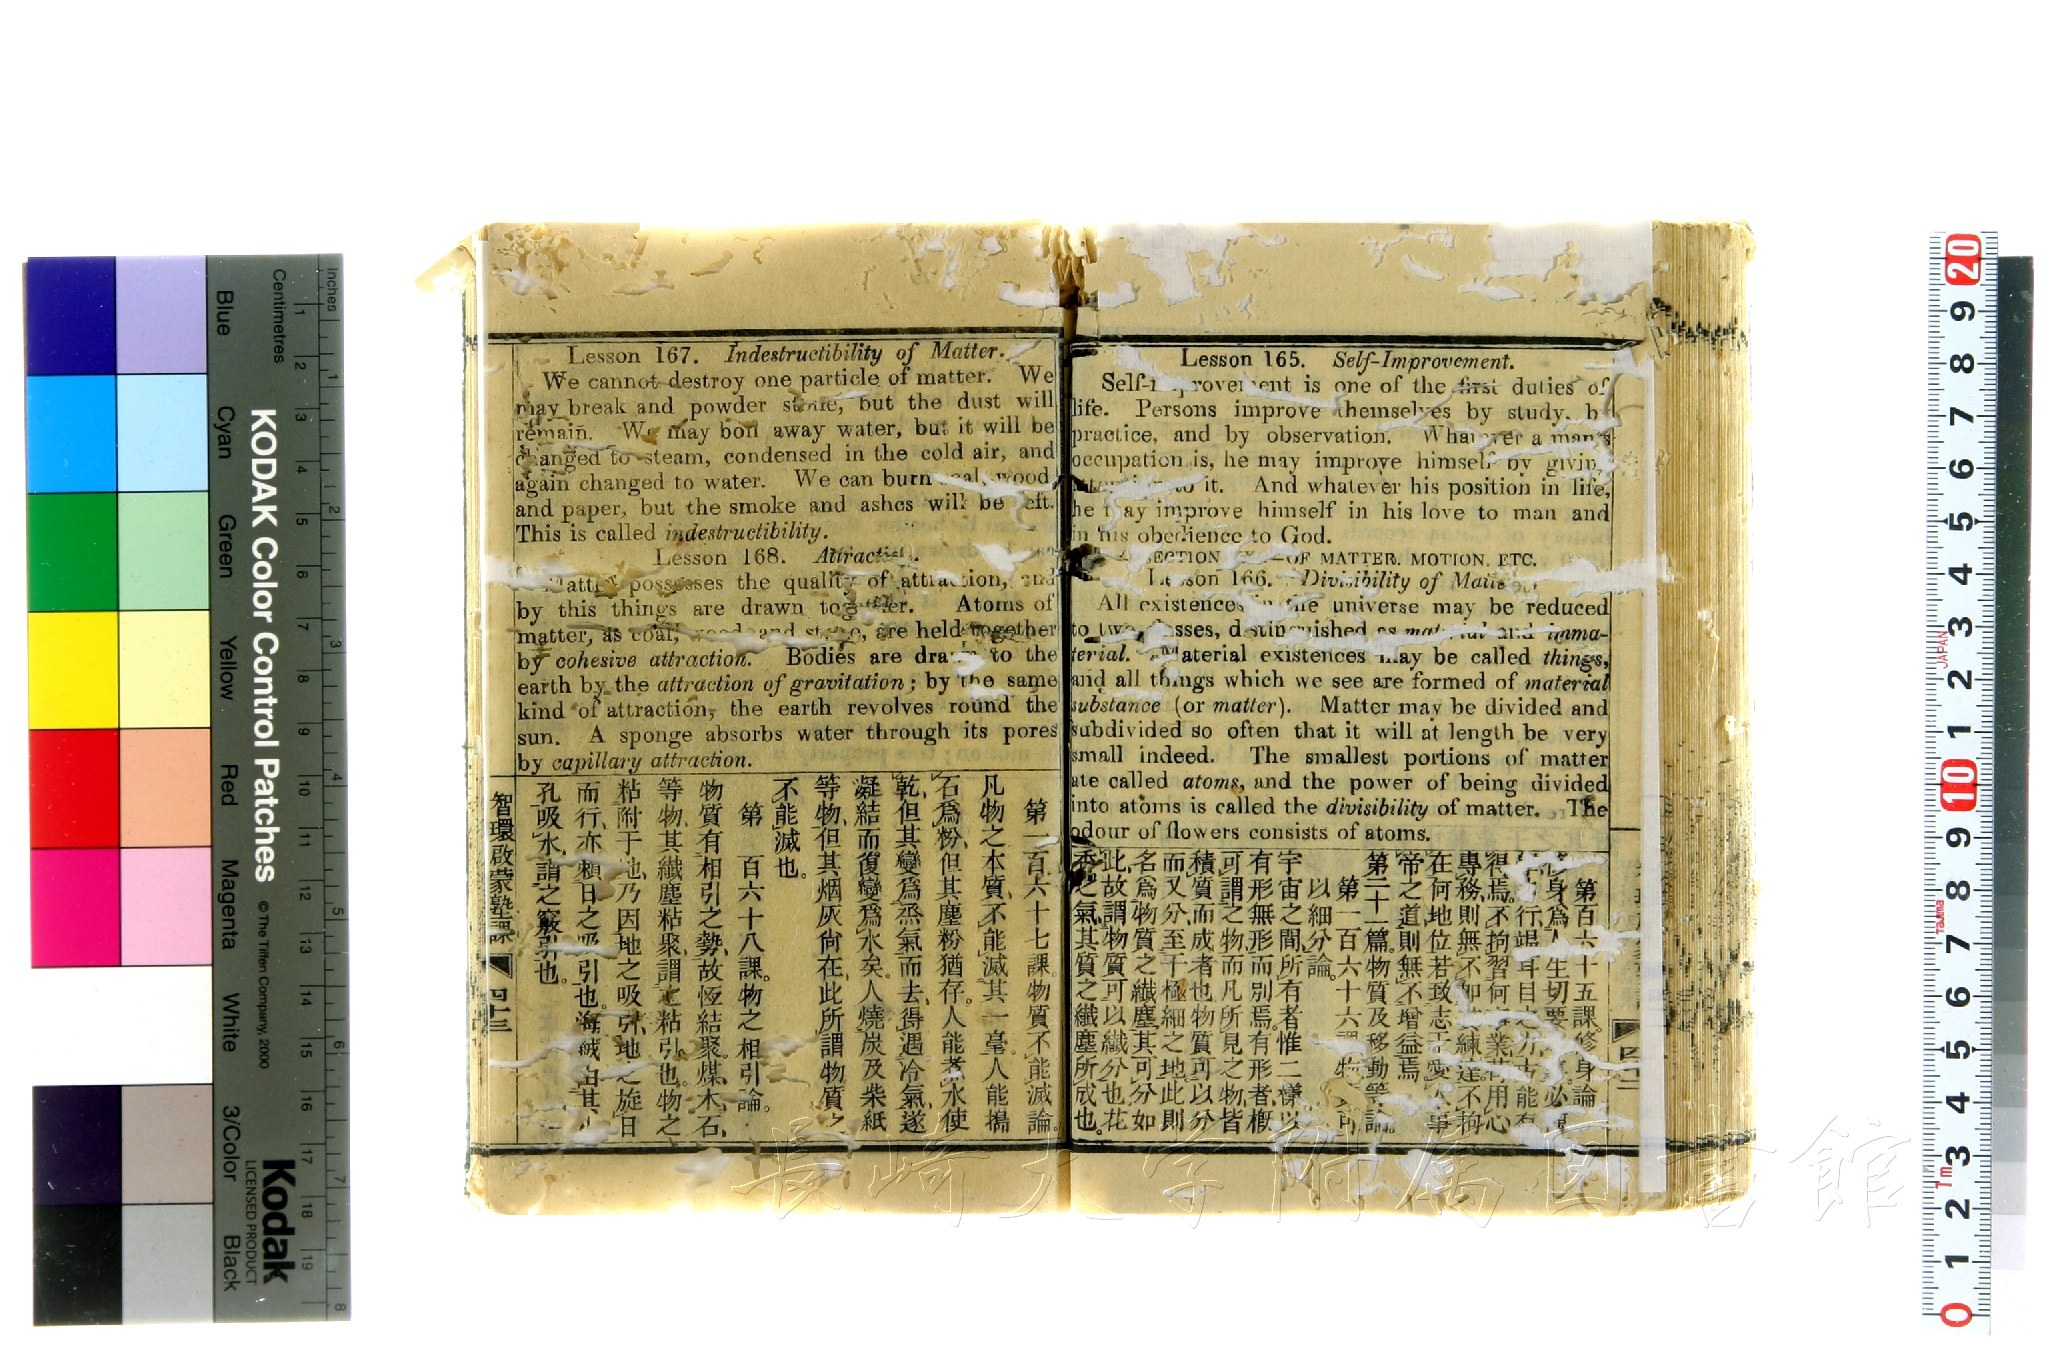 Lesson 165. Self-Improvement.
is one of the first duties of
life. Persons improve themselves by study, 
practice, and by observation. Whatever a man's
occupation is, he may improve himself by
to it. And whatever his position in life,
he may improve himself in his love to man and
in his obedience to God.
OF MATTER, MOTION, ETC.
Lesson 166. Divisibility of
All existences in the universe may be reduced
to two classes, distinguished as material and imma-
terial. Material existences may be called things,
and all things which we see are formed of material
substance (or matter). Matter may be divided and
subdivided so often that it will at length be very
small indeed. The smallest portions of matter
ate called atoms, and the power of being divided
into atoms is called the divisibility of matter. The
odour of flowers consists of atoms.
第百六十五課。修身論
身爲人生切要
得焉。不拘習何業
專務則無不練達不拘
在何地位若致志
帝之道則無不增益焉
第二十一篇。物質及移動等論。
第一百六十六課
以細分論。
宇宙之間所有者惟二樣以
有形無形而別焉。有形者概
可謂之物而凡所見之物皆
積質而成者也物質可以分
而又分至于極細之地此則
名爲物質之纖塵其可分如
此故謂物質可以纖分也花
香之氣其質之纖塵所成也。
Lesson 167. Indestructibility of Matter.
We cannot destroy one particle of matter. We
may break and powder stone, but the dust will
remain. We may boil away water, but it will be
changed to steam, condensed in the cold air, and
again changed to water. We can burn coal, wood,
and paper, but the smoke and ashes will be left.
This is called indestructibility.
Lesson 168. Attraction.
Matter possesses the quality of attraction, and
by this things are drawn together. Atoms of
matter, as coal, wood and stone, are held together
by cohesive attraction. Bodies are drawn to the
earth by the attraction of gravitation; by the same
kind of attraction, the earth revolves round the
sun. A sponge absorbs water through its pores
by capillary attraction.
第一百六十七課。物質不能滅論。
凡物之本質、不能滅其一毫。人能搗
石爲粉、但其塵粉猶存。人能煮水使
乾、但其變爲烝氣而去、得遇冷氣遂
凝結而復變爲水矣。人燒炭及柴紙
等物、但其烟灰尙在、此所謂物質之
不能滅也。
第一百六十八課。物之相引論。
物質有相引之勢、故恆結聚。煤、木、石、
等物、其纖塵粘聚、謂之粘引也。物之
粘附于地、乃因地之吸引、地之旋日
而行、亦賴日之吸引也。海絨由其
孔吸水、謂之竅引也。
智環啟蒙塾課
四十三
KODAK Color Control Patches
© The Tiffen Company, 2000
Kodak
LICENSED PRODUCT
Inches
Centimetres
Blue
Cyan
Green
Yellow
Red
Magenta
White
3/Color
Black
1 2 3 4 5 6 7 8 9 10 11 12 13 14 15 16 17 18 19
1 2 3 4 5 6 7 8
20 9 8 7 6 5 4 3 2 1 10 9 8 7 6 5 4 3 2 1 0
JAPAN
Tajima
1m
長崎大学附属図書館